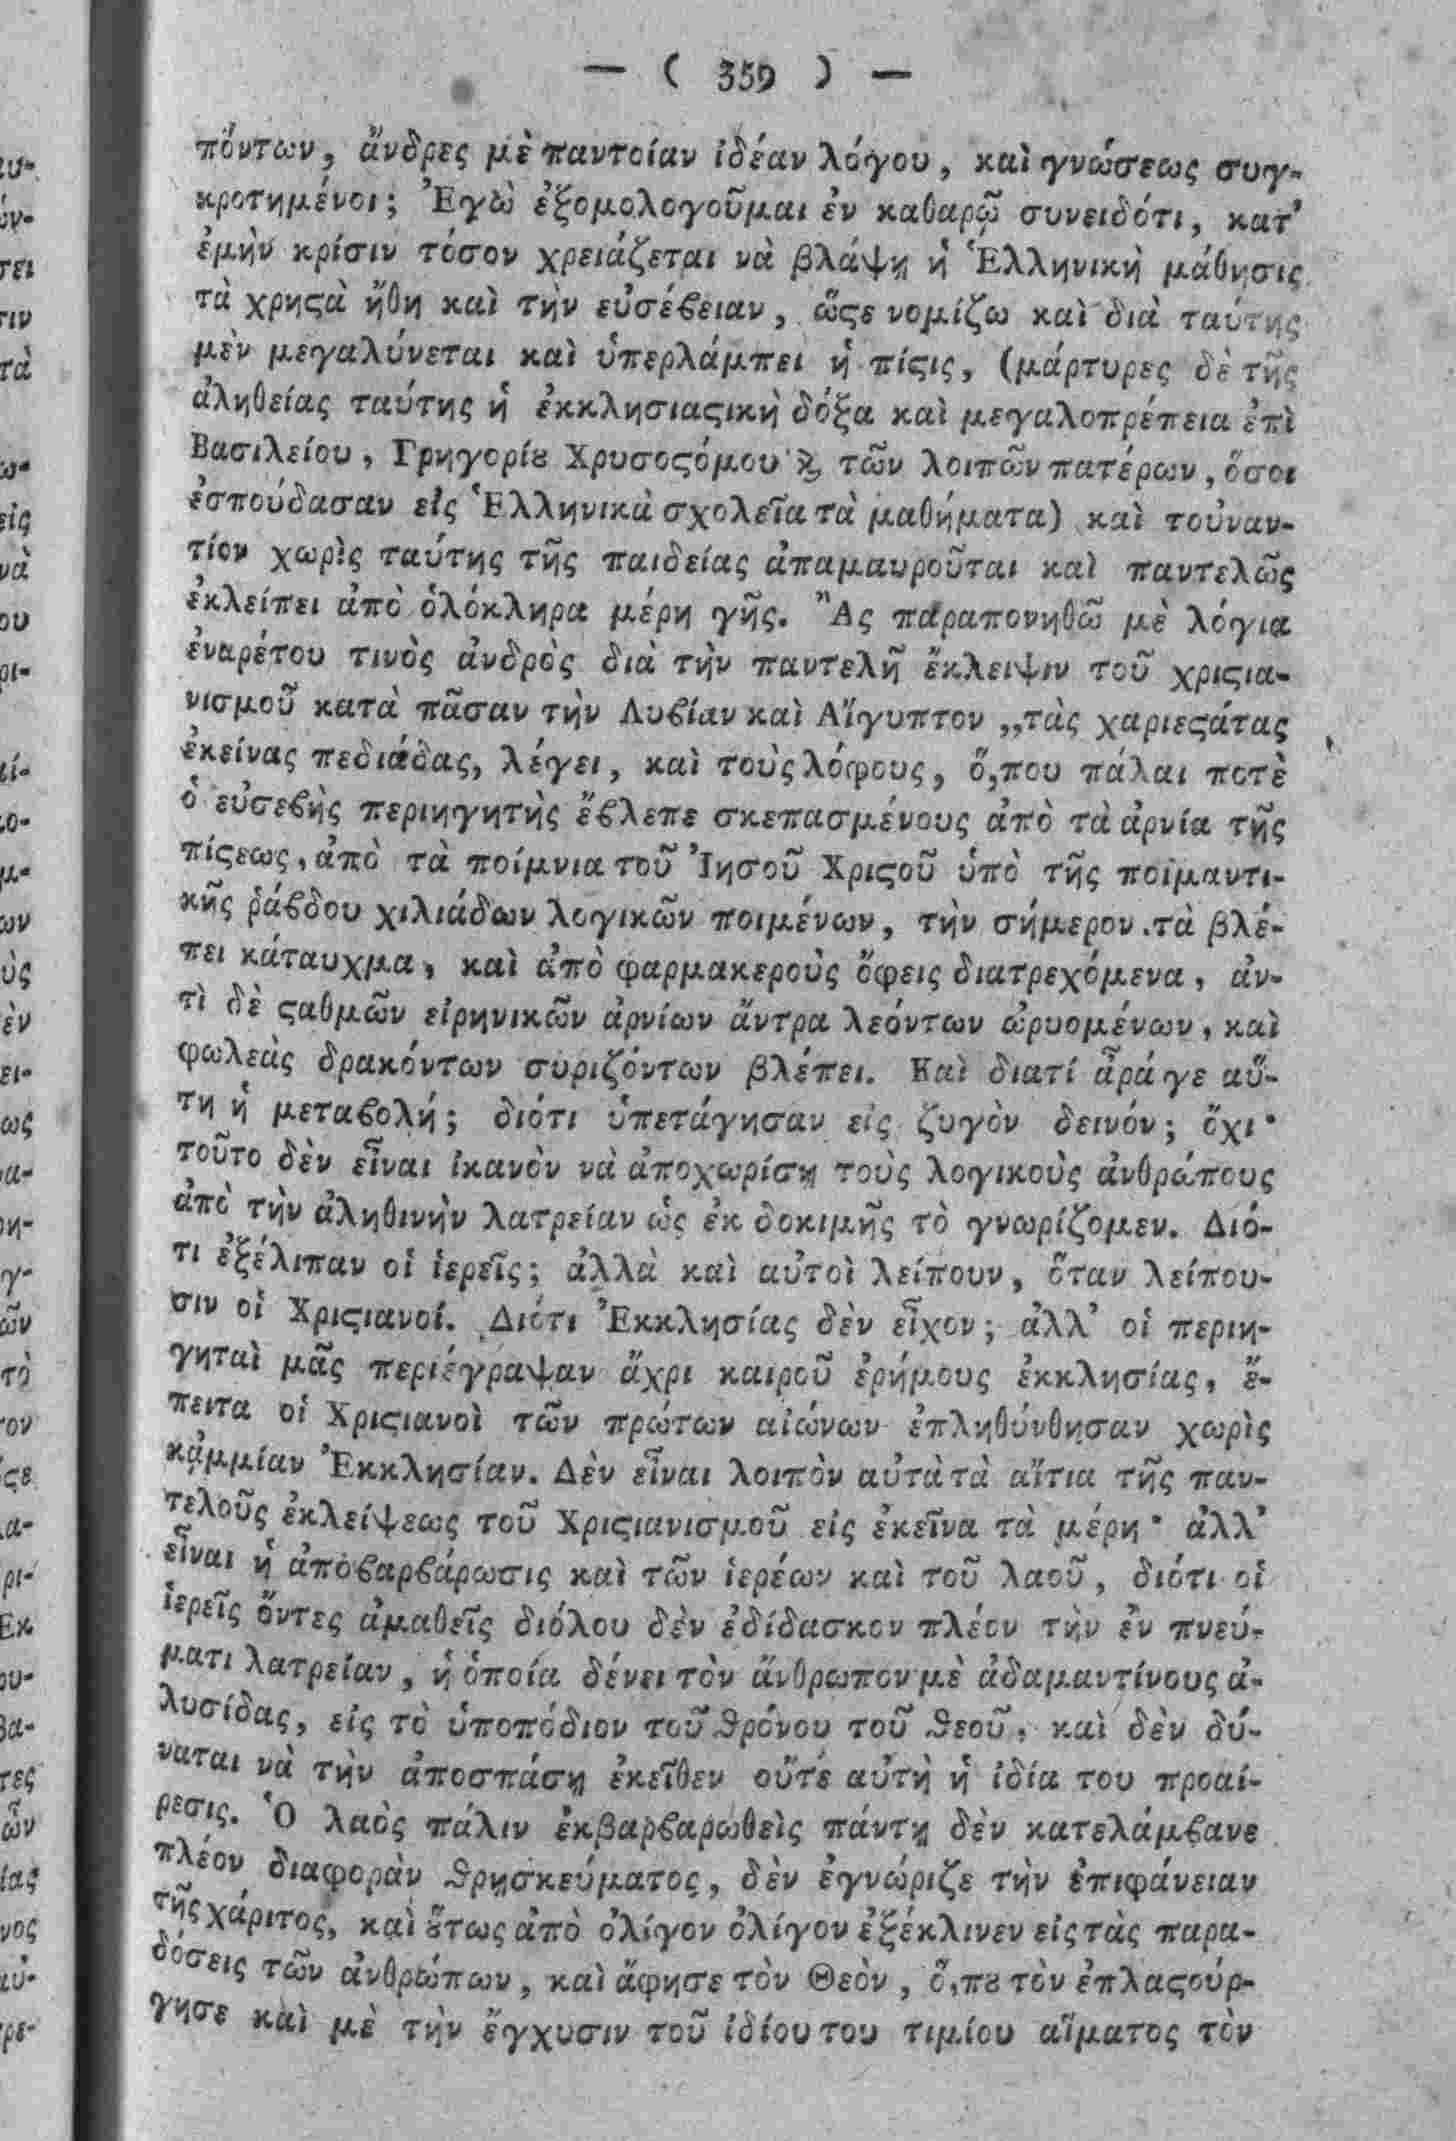 — ( 359 ) —
πόντων, ἄνδρες μὲ παντοίαν ἰδέαν λόγου, καὶ γνώσεως συγ-
κροτημένοι; Ἐγὼ ἐξομολογοῦμαι ἐν καθαρῷ συνειδότι, κατ'
ἐμὴν κρίσιν τόσον χρειάζεται νὰ βλάψῃ ἡ Ἑλληνικὴ μάθησις
τὰ χρηϛὰ ἤθη καὶ τὴν εὐσέβειαν, ὥϛε νομίζω καὶ διὰ ταύτης
μὲν μεγαλύνεται καὶ ὑπερλάμπει ἡ πίϛις, (μάρτυρες δὲ τῆς
ἀληθείας ταύτης ἡ ἐκκλησιαϛικὴ δόξα καὶ μεγαλοπρέπεια ἐπὶ
Βασιλείου, Γρηγορίȣ Χρυσοϛόμου ϗ τῶν λοιπῶν πατέρων, ὅσοι
ἐσπούδασαν εἰς Ἑλληνικὰ σχολεῖα τὰ μαθήματα) καὶ τοὐναν-
τίον χωρὶς ταύτης τῆς παιδείας ἀπαμαυροῦται καὶ παντελῶς
ἐκλείπει ἀπὸ ὁλόκληρα μέρη γῆς. Ἂς παραπονηθῶ μὲ λόγια
ἐναρέτου τινὸς ἀνδρὸς διὰ τὴν παντελῆ ἔκλειψιν τοῦ χριϛια-
νισμοῦ κατὰ πᾶσαν τὴν Λυβίαν καὶ Αἴγυπτον „τὰς χαριεϛάτας
ἐκείνας πεδιάδας, λέγει, καὶ τοὺς λόφους, ὅ,που πάλαι ποτὲ
ὁ εὐσεβὴς περιηγητὴς ἔβλεπε σκεπασμένους ἀπὸ τὰ ἀρνία τῆς
πίϛεως, ἀπὸ τὰ ποίμνια τοῦ Ἰησοῦ Χριϛοῦ ὑπὸ τῆς ποιμαντι-
κῆς ῥάβδου χιλιάδων λογικῶν ποιμένων, τὴν σήμερον τὰ βλέ-
πει κάταυχμα, καὶ ἀπὸ φαρμακεροὺς ὄφεις διατρεχόμενα, ἀν-
τὶ δὲ ϛαθμῶν εἰρηνικῶν ἀρνίων ἄντρα λεόντων ὠρυομένων, καὶ
φωλεὰς δρακόντων συριζόντων βλέπει. Καὶ διατί ἆρά γε αὕ-
τη ἡ μεταβολή; διότι ὑπετάγησαν εἰς ζυγὸν δεινόν; ὄχι·
τοῦτο δὲν εἶναι ἱκανὸν νὰ ἀποχωρίσῃ τοὺς λογικοὺς ἀνθρώπους
ἀπὸ τὴν ἀληθινὴν λατρείαν ὡς ἐκ δοκιμῆς τὸ γνωρίζομεν. Διό-
τι ἐξέλιπαν οἱ ἱερεῖς; ἀλλὰ καὶ αὐτοὶ λείπουν, ὅταν λείπου-
σιν οἱ Χριϛιανοί. Διότι Ἐκκλησίας δὲν εἶχον; ἀλλ' οἱ περιη-
γηταὶ μᾶς περιέγραψαν ἄχρι καιροῦ ἐρήμους ἐκκλησίας, ἔ-
πειτα οἱ Χριϛιανοὶ τῶν πρώτων αἰώνων ἐπληθύνθησαν χωρὶς
κᾀμμίαν Ἐκκλησίαν. Δὲν εἶναι λοιπὸν αὐτὰ τὰ αἴτια τῆς παν-
τελοῦς ἐκλείψεως τοῦ Χριϛιανισμοῦ εἰς ἐκεῖνα τὰ μέρη· ἀλλ'
εἶναι ἡ ἀποβαρβάρωσις καὶ τῶν ἱερέων καὶ τοῦ λαοῦ, διότι οἱ
ἱερεῖς ὄντες ἀμαθεῖς διόλου δὲν ἐδίδασκον πλέον τὴν ἐν πνεύ-
ματι λατρείαν, ἡ ὁποία δένει τὸν ἄνθρωπον μὲ ἀδαμαντίνους ἁ-
λυσίδας, εἰς τὸ ὑποπόδιον τοῦ θρόνου τοῦ θεοῦ, καὶ δὲν δύ-
ναται νὰ τὴν ἀποσπάσῃ ἐκεῖθεν οὔτε αὐτὴ ἡ ἰδία του προαί-
ρεσις. Ὁ λαὸς πάλιν ἐκβαρβαρωθεὶς πάντῃ δὲν κατελάμβανε
πλέον διαφορὰν θρησκεύματος, δὲν ἐγνώριζε τὴν ἐπιφάνειαν
τῆς χάριτος, καὶ ȣ̓́τως ἀπὸ ὀλίγον ὀλίγον ἐξέκλινεν εἰς τὰς παρα-
δόσεις τῶν ἀνθρώπων, καὶ ἄφησε τὸν Θεὸν, ὅ,πȣ τὸν ἐπλαϛούρ-
γησε καὶ μὲ τὴν ἔγχυσιν τοῦ ἰδίου του τιμίου αἵματος τὸν